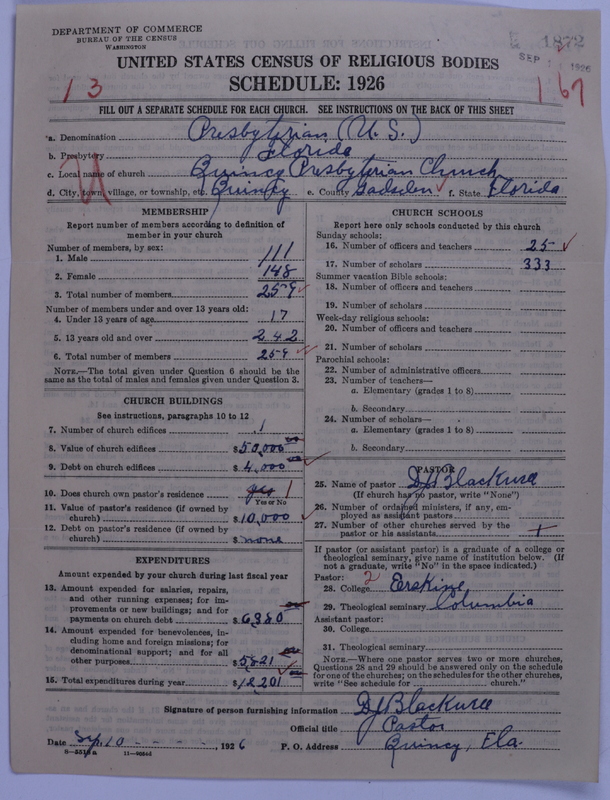 DEPARTMENT OF COMMERCE
BUREAU OF THE CENSUS
WASHINGTON
1872
SEP 1926
UNITED STATES CENSUS OF RELIGIOUS BODIES
SCHEDULE: 1926
13
167
FILL OUT A SEPARATE SCHEDULE FOR EACH CHURCH. SEE INSTRUCTIONS ON THE BACK OF THIS SHEET
a. Denomination Presbyterian (U. S.)
b. Presbytery Florida
c. Local name of church Quincy Presbyterian Church
d. City, town, village, or township, etc. Quincy e. County Gadsden f. State Florida
MEMBERSHIP
Report number of members according to definition of member in your church
Number of members, by sex:
1. Male 111
2. Female 148
3. Total number of members 259
Number of members under and over 13 years old:
4. Under 13 years of age 17
5. 13 years old and over 242
6. Total number of members 259
NOTE.—The total given under Question 6 should be
same as the total of males and females given under Question 3.
CHURCH BUILDINGS
See instructions, paragraphs 10 to 12
7. Number of church edifices 1
8. Value of church edifices $50,000
9. Debt on church edifices $4,000
10. Does church own pastor's residence yes 1
Yes or No
11. Value of pastor's residence (if owned by
church) $10,000
12. Debt on pastor's residence (if owned by
church) $none
EXPENDITURES
Amount expended by your church during last fiscal year
13. Amount expended for salaries, repairs,
and other running expenses; for im-
provements or new buildings; and for
payments on church debt $6380
14. Amount expended for benevolences, in-
cluding home and foreign missions; for
denominational support; and for all
other purposes $5821
15. Total expenditures during year $12,201
CHURCH SCHOOLS
Report here only schools conducted by this church
Sunday schools:
16. Number of officers and teachers 25
17. Number of scholars 333
Summer vacation Bible schools:
18. Number of officers and teachers
19. Number of scholars
Week-day religious schools:
20. Number of officers and teachers
21. Number of scholars
Parochial schools:
22. Number of administrative officers
23. Number of teachers—
a. Elementary (grades 1 to 8)
b. Secondary
24. Number of scholars—
a. Elementary (grades 1 to 8)
b. Secondary
PASTOR
25. Name of pastor
(If church has no pastor, write "None")
26. Number of ordained ministers, if any, em-
ployed as assistant pastors
27. Number of other churches served by the
pastor or his assistants
If pastor (or assistant pastor) is a graduate of a college or
theological seminary, give name of institution below. (If
not a graduate, write "No" in the space indicated.)
Pastor: 2
28. College Erskine
29. Theological seminary Columbia
Assistant pastor:
30. College
31. Theological seminary
NOTE.—Where one pastor serves two or more churches,
Questions 28 and 29 should be answered only on the schedule
for one of the churches; on the schedules for the other churches,
write "See schedule for church."
Signature of person furnishing information
Official title Pastor
Date Sep. 10, 1926 P. O. Address Quincy, Fla.